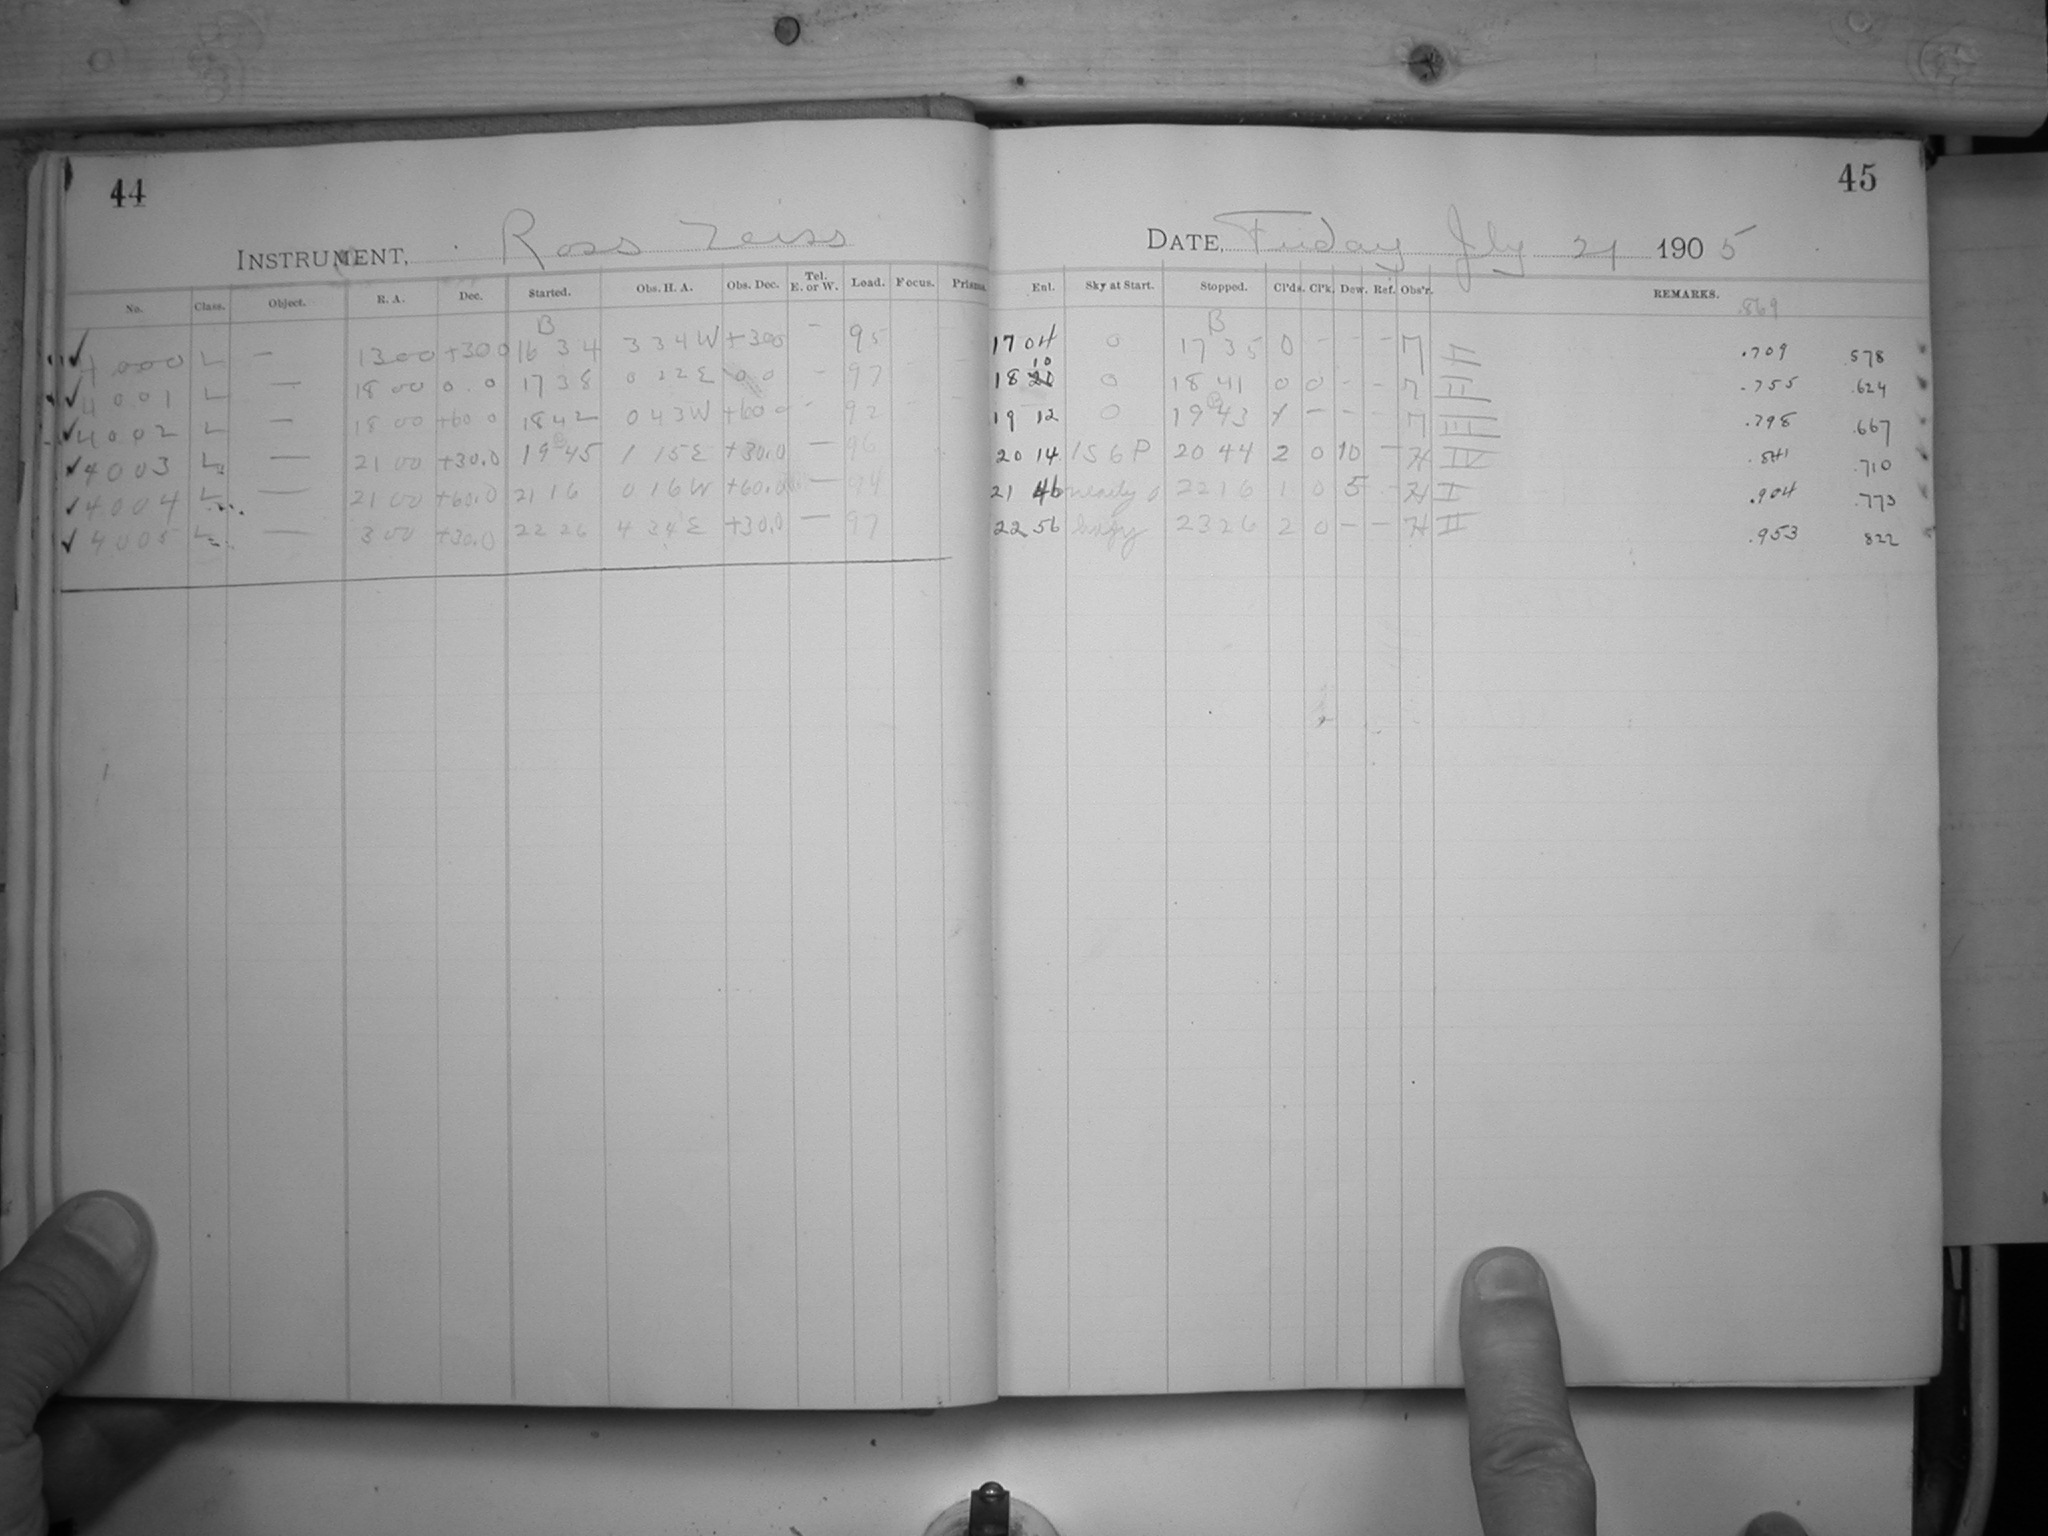 44
INSTRUMENT, Ross Zeiss
No. Class. Object. R. A. Dec. Started. Obs. H. A. Obs. Dec. Tel. E. or W. Load. Focus. Prisms.
B
✓ 4000 L — 13 00 +30 0 16 34 3 34 W +30 0 – 95
✓ 4001 L — 18 00 0.0 17 38 0 22 E 0 0 – 97
✓ 4002 L — 18 00 +60 0 18 42 0 43 W +60 0 – 92
✓ 4003 L — 21 00 +30.0 19 45 1 15 E +30.0 — 96
✓ 4004 L — 21 00 +60.0 21 16 0 16 W +60.0 — 94
✓ 4005 L — 3 00 +30.0 22 26 4 34 E +30.0 — 97
45
DATE, Friday Jly 21 1905
Ent. Sky at Start. Stopped. Cl'ds. Cl'k. Dew. Ref. Obs'r. REMARKS.
.869
B
17 04 0 17 35 0 – – – .709 578
10
18 0 18 41 0 0 – – III .755 .624
19 12 0 19 43 – – – .798 .667
20 14 1 S 6 P 20 44 2 0 10 – H IV .841 .710
21 46 nearly 0 22 16 1 0 5 – H I .904 .773
22 56 hazy 23 26 2 0 – – H II .953 822